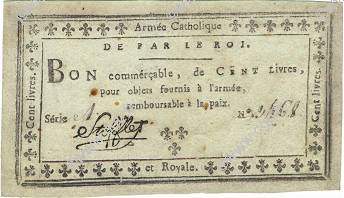 Armée Catholique
DE PAR LE ROI.
BON commerçable, de CENT Livres,
pour objets fournis à l'armée,
remboursable à la paix.
Série A N.° 3468
Stofflet
et Royale.
Cent livres.
Cent livres.